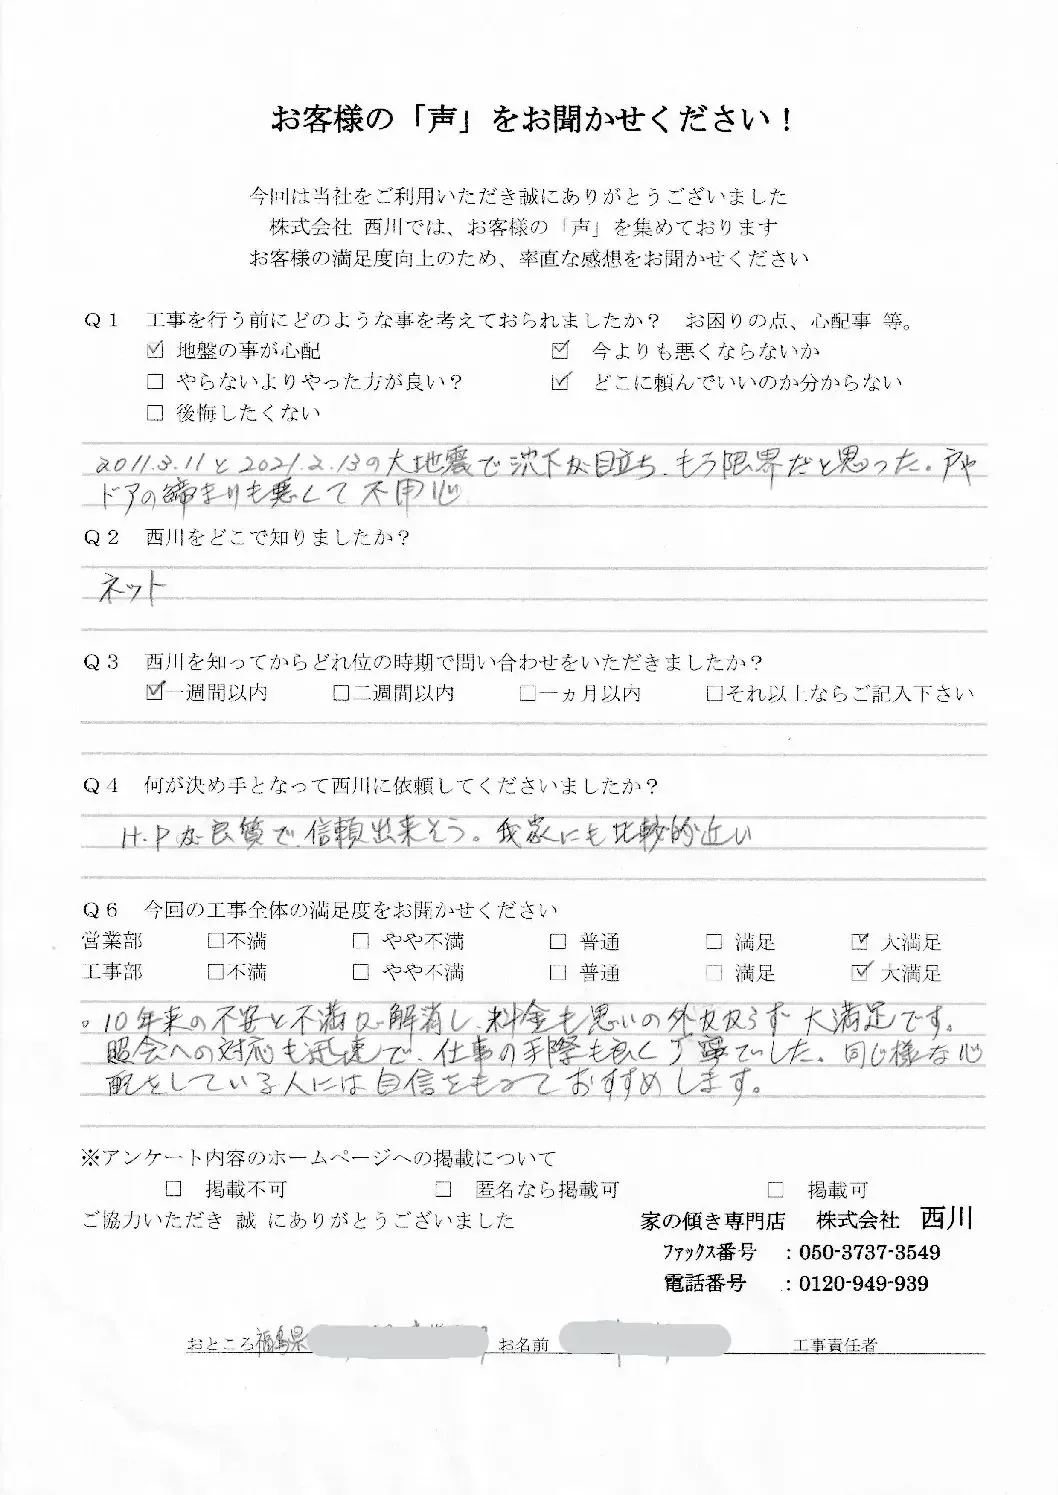 お客様の「声」をお聞かせください！
今回は当社をご利用いただき誠にありがとうございました
株式会社 西川では、お客様の「声」を集めております
お客様の満足度向上のため、率直な感想をお聞かせください
Q1 工事を行う前にどのような事を考えておられましたか？ お困りの点、心配事 等。
☑ 地盤の事が心配 ☑ 今よりも悪くならないか
□ やらないよりやった方が良い？ ☑ どこに頼んでいいのか分からない
□ 後悔したくない
2011.3.11と2021.2.13の大地震で沈下が目立ち、もう限界だと思った。戸や
ドアの締まりも悪くて不用心
Q2 西川をどこで知りましたか？
ネット
Q3 西川を知ってからどれ位の時期で問い合わせをいただきましたか？
☑一週間以内 □二週間以内 □一ヵ月以内 □それ以上ならご記入下さい
Q4 何が決め手となって西川に依頼してくださいましたか？
H.Pが良質で、信頼出来そう。我家にも比較的近い
Q6 今回の工事全体の満足度をお聞かせください
営業部 □不満 □ やや不満 □ 普通 □ 満足 ☑ 大満足
工事部 □不満 □ やや不満 □ 普通 □ 満足 ☑ 大満足
。10年来の不安と不満が解消し、料金も思いの外及ばず大満足です。
照会への対応も迅速で、仕事の手際も良く丁寧でした。同じ様な心
配をしている人には自信をもっておすすめします。
※アンケート内容のホームページへの掲載について
□ 掲載不可 □ 匿名なら掲載可 □ 掲載可
ご協力いただき 誠 にありがとうございました 家の傾き専門店 株式会社 西川
ﾌｧｯｸｽ番号 : 050-3737-3549
電話番号 : 0120-949-939
おところ 福島県 お名前 工事責任者